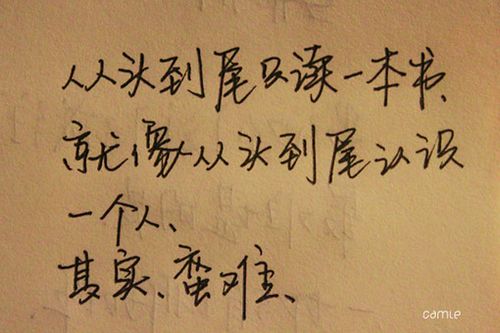 从从头到尾只读一本书、
就像从从头到尾认识
一个人、
其实、蛮难、
camie